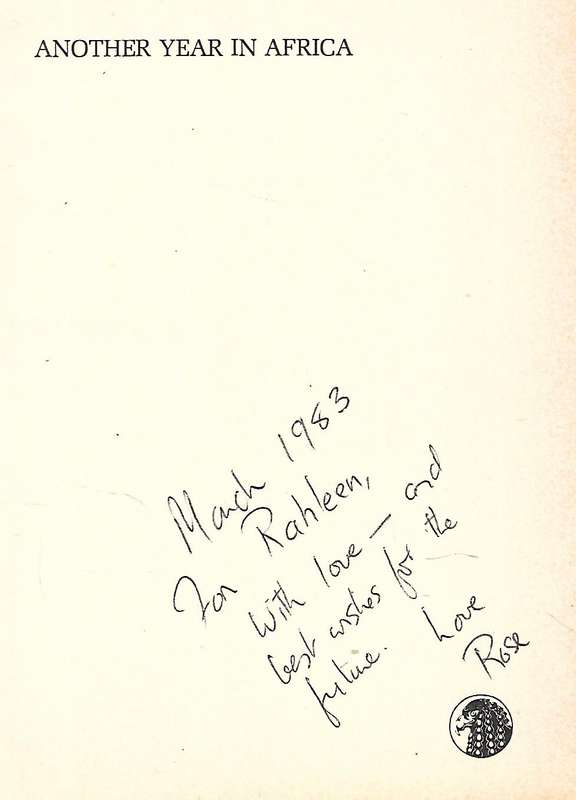 ANOTHER YEAR IN AFRICA
March 1983
For Rahleen,
With love – and
best wishes for the
future.
Love
Rose